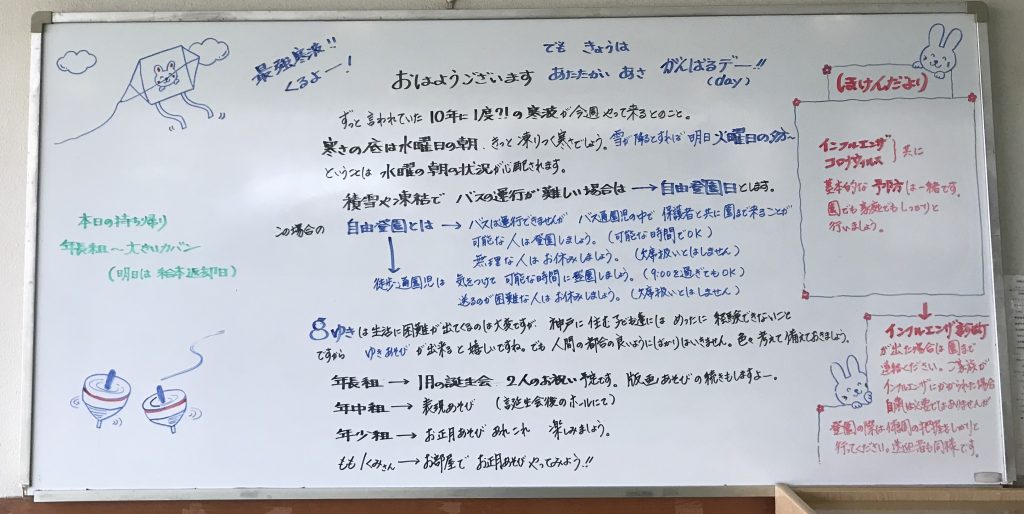 最強寒波!!
くるよー!
でも きょうは
おはようございます あたたかい あさ がんばるデー!!
(day)
ずっと言われていた 10年に1度?!の寒波が今週やって来るとのこと。
寒さの底は水曜日の朝、きっと凍りつく寒さでしょう。雪が降るとすれば明日 火曜日の夕方〜
ということは 水曜の朝の状況が心配されます。
積雪や凍結で バスの運行が難しい場合は→自由登園日とします。
この場合の 自由登園とは→バスは運行できませんが バス通園児の中で 保護者と共に園まで来ることが
可能な人は登園しましょう。(可能な時間でOK)
無理な人はお休みしましょう。(欠席扱いとはしません)
徒歩通園児は 気をつけて 可能な時間に登園しましょう。(9:00を過ぎてもOK)
送るのが困難な人はお休みしましょう。(欠席扱いとはしません)
ゆきは生活に困難が出てくるのは大変ですが、神戸に住む子ども達には めったに 経験できないこと
ですから ゆきあそびが出来ると嬉しいですね。でも 人間の都合の良いようにばかりはいきません。色々考えて備えておきましょう。
年長組→1月の誕生会 2人のお祝い予定です。版画あそびの続きもしますよー。
年中組→表現あそび (誕生会後のホールにて)
年少組→お正月あそび あれこれ 楽しみましょう。
ももくみさん→お部屋で お正月あそび やってみよう!!
本日の持ち帰り
年長組〜大きいカバン
(明日は 絵本返却日)
ほけんだより
インフルエンザ
コロナウィルス 共に
基本的な 予防は一緒です。
園でも家庭でもしっかりと
行いましょう。
インフルエンザ診断
が出た場合は園まで
連絡ください。ご家族が
インフルエンザにかかられた場合
自粛は必要ではありませんが
登園の際は体調の把握をしっかりと
行ってください。送迎者も同様です。